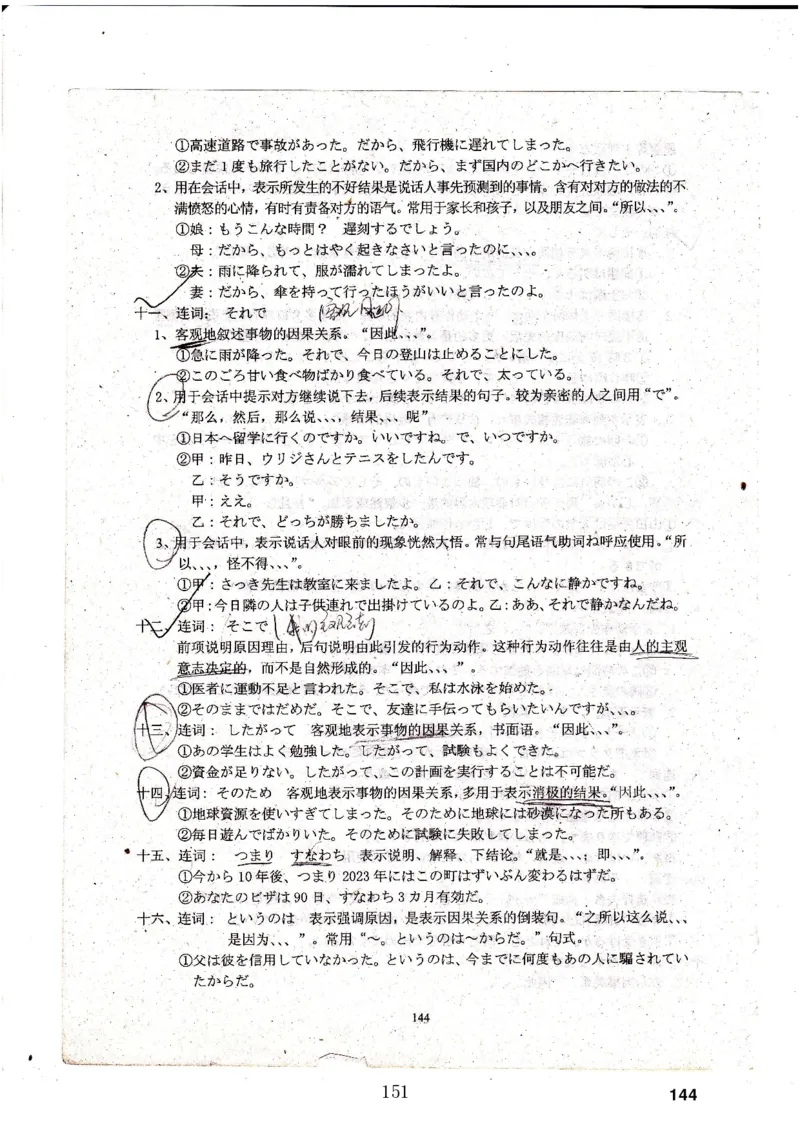 ①高速道路で事故があった。だから、飛行機に遅れてしまった。
②まだ1度も旅行したことがない。だから、まず国内のどこかへ行きたい。
2、用在会话中，表示所发生的不好结果是说话人事先预测到的事情。含有对对方的做法的不
满愤怒的心情，有时有责备对方的语气。常用于家长和孩子，以及朋友之间。“所以、、、”。
①娘：もうこんな時間？ 遅刻するでしょう。
母：だから、もっとはやく起きなさいと言ったのに、、、。
②夫：雨に降られて、服が濡れてしまったよ。
妻：だから、傘を持って行ったほうがいいと言ったのよ。
十一、连词： それで
1、客观地叙述事物的因果关系。“因此、、、”。
①急に雨が降った。それで、今日の登山は止めることにした。
②このごろ甘い食べ物ばかり食べている。それで、太っている。
2、用于会话中提示对方继续说下去，后续表示结果的句子。较为亲密的人之间用“で”。
“那么，然后，那么说、、、，结果、、、呢”
①日本へ留学に行くのですか。いいですね。で、いつですか。
②甲：昨日、ウリジさんとテニスをしたんです。
乙：そうですか。
甲：ええ。
乙：それで、どっちが勝ちましたか。
3、用于会话中，表示说话人对眼前的现象恍然大悟。常与句尾语气助词ね呼应使用。“所
以、、、，怪不得、、、”。
①甲：さっき先生は教室に来ましたよ。乙：それで、こんなに静かですね。
②甲：今日隣の人は子供連れで出掛けているのよ。乙：ああ、それで静かなんだね。
十二、连词： そこで
前项说明原因理由，后句说明由此引发的行为动作。这种行为动作往往是由人的主观
意志决定的，而不是自然形成的。“因此、、、”。
①医者に運動不足と言われた。そこで、私は水泳を始めた。
②そのままではだめだ。そこで、友達に手伝ってもらいたいんですが、、、。
十三、连词： したがって 客观地表示事物的因果关系，书面语。“因此、、、”。
①あの学生はよく勉強した。したがって、試験もよくできた。
②資金が足りない。したがって、この計画を実行することは不可能だ。
十四、连词： そのため 客观地表示事物的因果关系，多用于表示消极的结果。“因此、、、”。
①地球資源を使いすぎてしまった。そのために地球には砂漠になった所もある。
②毎日遊んでばかりいた。そのために試験に失敗してしまった。
十五、连词： つまり すなわち 表示说明、解释、下结论。“就是、、、；即、、、”。
①今から10年後、つまり2023年にはこの町はずいぶん変わるはずだ。
②あなたのビザは90日、すなわち3カ月有効だ。
十六、连词： というのは 表示强调原因，是表示因果关系的倒装句。“之所以这么说、、、
是因为、、、”。常用“～。というのは～からだ。”句式。
①父は彼を信用していなかった。というのは、今までに何度もあの人に騙されてい
たからだ。
144
151
144